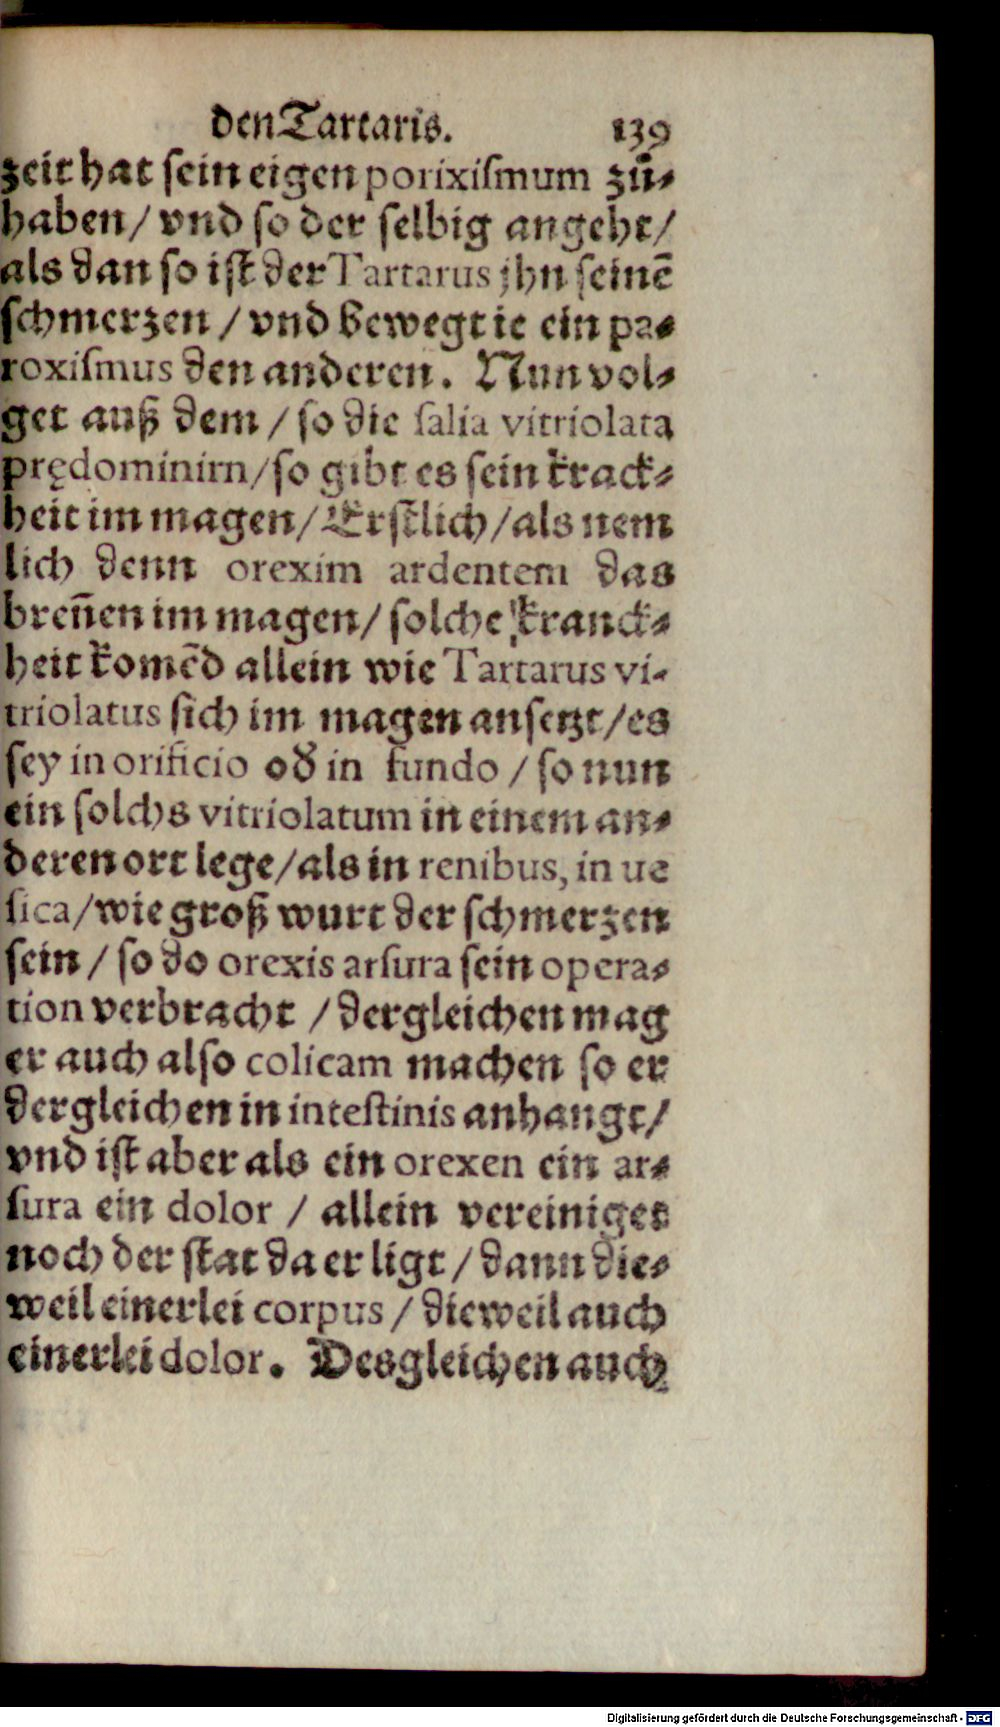 den Tartaris. 139
zeit hat sein eigen porixiſmum zuͦ⸗
haben / vnd so der selbig angeht /
als dan so ist der Tartarus jhn seinē
schmerzen / vnd bewegt ie ein pa⸗
roxiſmus den anderen. Nun vol⸗
get auß dem / so die ſalia vitriolata
prędominirn / so gibt es sein krack⸗
heit im magen / Erstlich / als nem
lich denn orexim ardentem das
breñen im magen / solche kranck⸗
heit komēd allein wie Tartarus vi-
triolatus sich im magen ansetzt / es
sey in orificio od in fundo / so nun
ein solchs vitriolatum in einem an⸗
deren ort lege / als in renibus, in ue
ſica / wie groß wurt der schmerzen
sein / so do orexis arſura sein opera⸗
tion verbracht / dergleichen mag
er auch also colicam machen so er
dergleichen in inteſtinis anhangt /
vnd ist aber als ein orexen ein ar⸗
ſura ein dolor / allein vereiniget
noch der stat da er ligt / dann die⸗
weil einerlei corpus / dieweil auch
einerlei dolor. Desgleichen auch
Digitalisierung gefördert durch die Deutsche Forschungsgemeinschaft - DFG